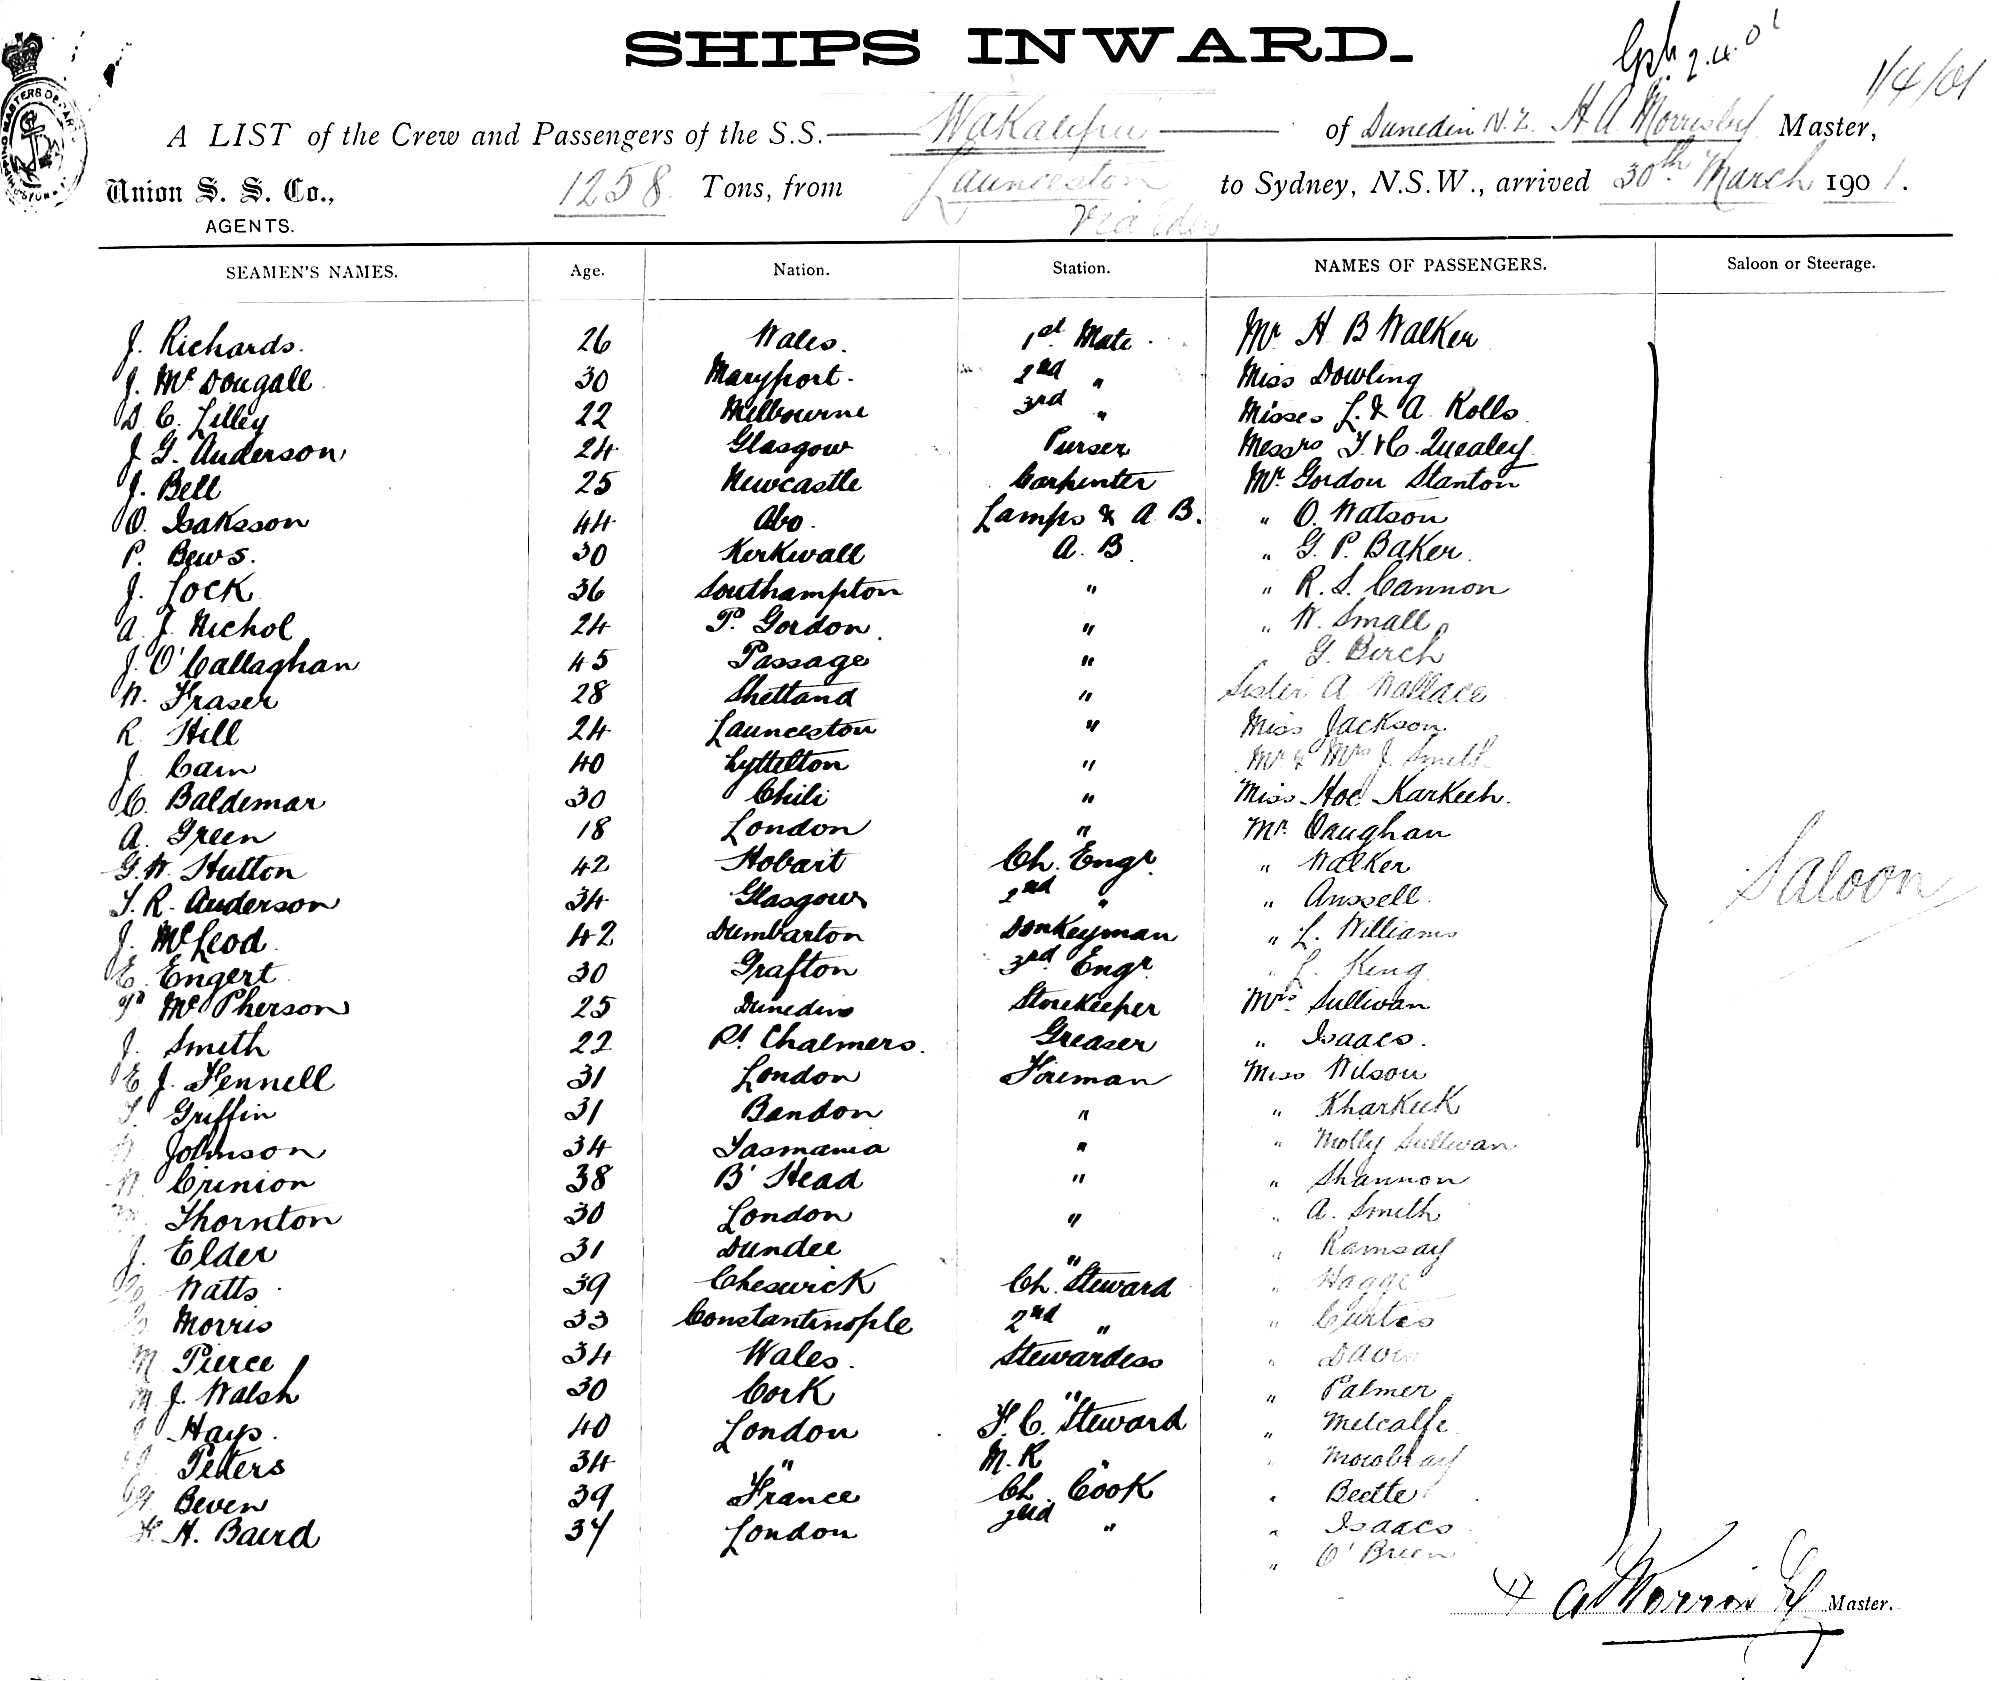 SHIPS INWARD.
2.4.01
1/4/01
A LIST of the Crew and Passengers of the S.S. Wakatipu of Dunedin N.Z. H A Morrisby Master,
Union S. S. Co., 1258 Tons, from Launceston to Sydney, N.S.W., arrived 30th March 1901.
AGENTS. via Eden
SEAMEN'S NAMES. Age. Nation. Station. NAMES OF PASSENGERS. Saloon or Steerage.
J. Richards. 26 Wales. 1st Mate Mr H B Walker
J. McDougall 30 Maryport. 2nd " Miss Dowling
D. C. Lilley 22 Melbourne 3rd " Misses L. & A. Rolls
J. G. Anderson 24 Glasgow Purser Messrs T. & C. Quealey
J. Bell 25 Newcastle Carpenter Mr Gordon Stanton
O. Isaksson 44 Abo. Lamps & A B. " O. Watson
P. Bews. 30 Kirkwall A. B. " G. P. Baker
J. Lock 36 Southampton " " R. S. Cannon
A. J. Nichol 24 P. Gordon " " W. Small
J. O'Callaghan 45 Passage " G. Birch
W. Fraser 28 Shetland " Sister A Wallace
R. Hill 24 Launceston " Miss Jackson
J. Cain 40 Lyttelton " Mr & Mrs J. Smith
C. Baldemar 30 Chili " Miss Hoe Karkeeh.
A. Green 18 London " Mr. Vaughan
G. W. Hutton 42 Hobart Ch. Engr. " Walker
T. R. Anderson 34 Glasgow 2nd " " Anssell.
J. McLeod 42 Dumbarton Donkeyman " L. Williams
E. Engert 30 Grafton 3rd Engr. " L. King
P McPherson 25 Dunedin Storekeeper Mrs. Sullivan
J. Smith 22 Pt Chalmers. Greaser " Isaacs.
E J. Fennell 31 London Fireman Miss Wilson
T. Griffin 31 Bandon " " Kharkeek
Johnson 34 Tasmania " " Molly Sullivan
W. Crinion 38 B' Head " " Shannon
Thornton 30 London " " A. Smith
J. Elder 31 Dundee " " Ramsay
Watts 39 Cheswick Ch. Steward " Hagge
Morris 33 Constantinople 2nd " " Curtis
M Pierce 34 Wales. Stewardess " Davis
M. J. Walsh 30 Cork " " Palmer
Hays. 40 London F. C. Steward " Metcalfe
Peters 34 " M. R " " Mowbray
Beven 39 France Ch. Cook " Beette
H. Baird 37 London 2nd " " Isaacs
" O'Brien
Saloon
H A Morrisby Master.